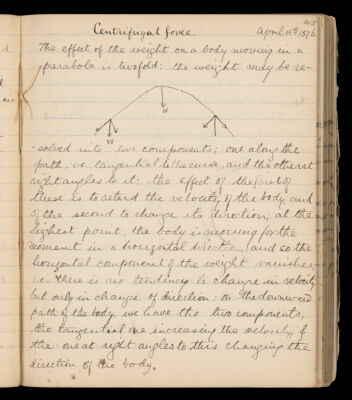 45
Centrifugal force. April 15th 1876
The effect of the weight on a body moving in a
parabola is twofold: the weight may be re-
W
W
-solved into two components; one along the
path, i.e. tangential to the curve, and the other at
right angles to it: the effect of the first of
these is to retard the velocity of the body, and
of the second to change its direction; at the
highest point, the body is moving for the
moment in a horizontal direction, and so the
horizontal component of the weight vanishes
i.e. there is no tendency to change in velocity
but only in change of direction; on the downward
path of the body, we have the two components,
the tangential one increasing the velocity, &
the one at right angles to this changing the
direction of the body.